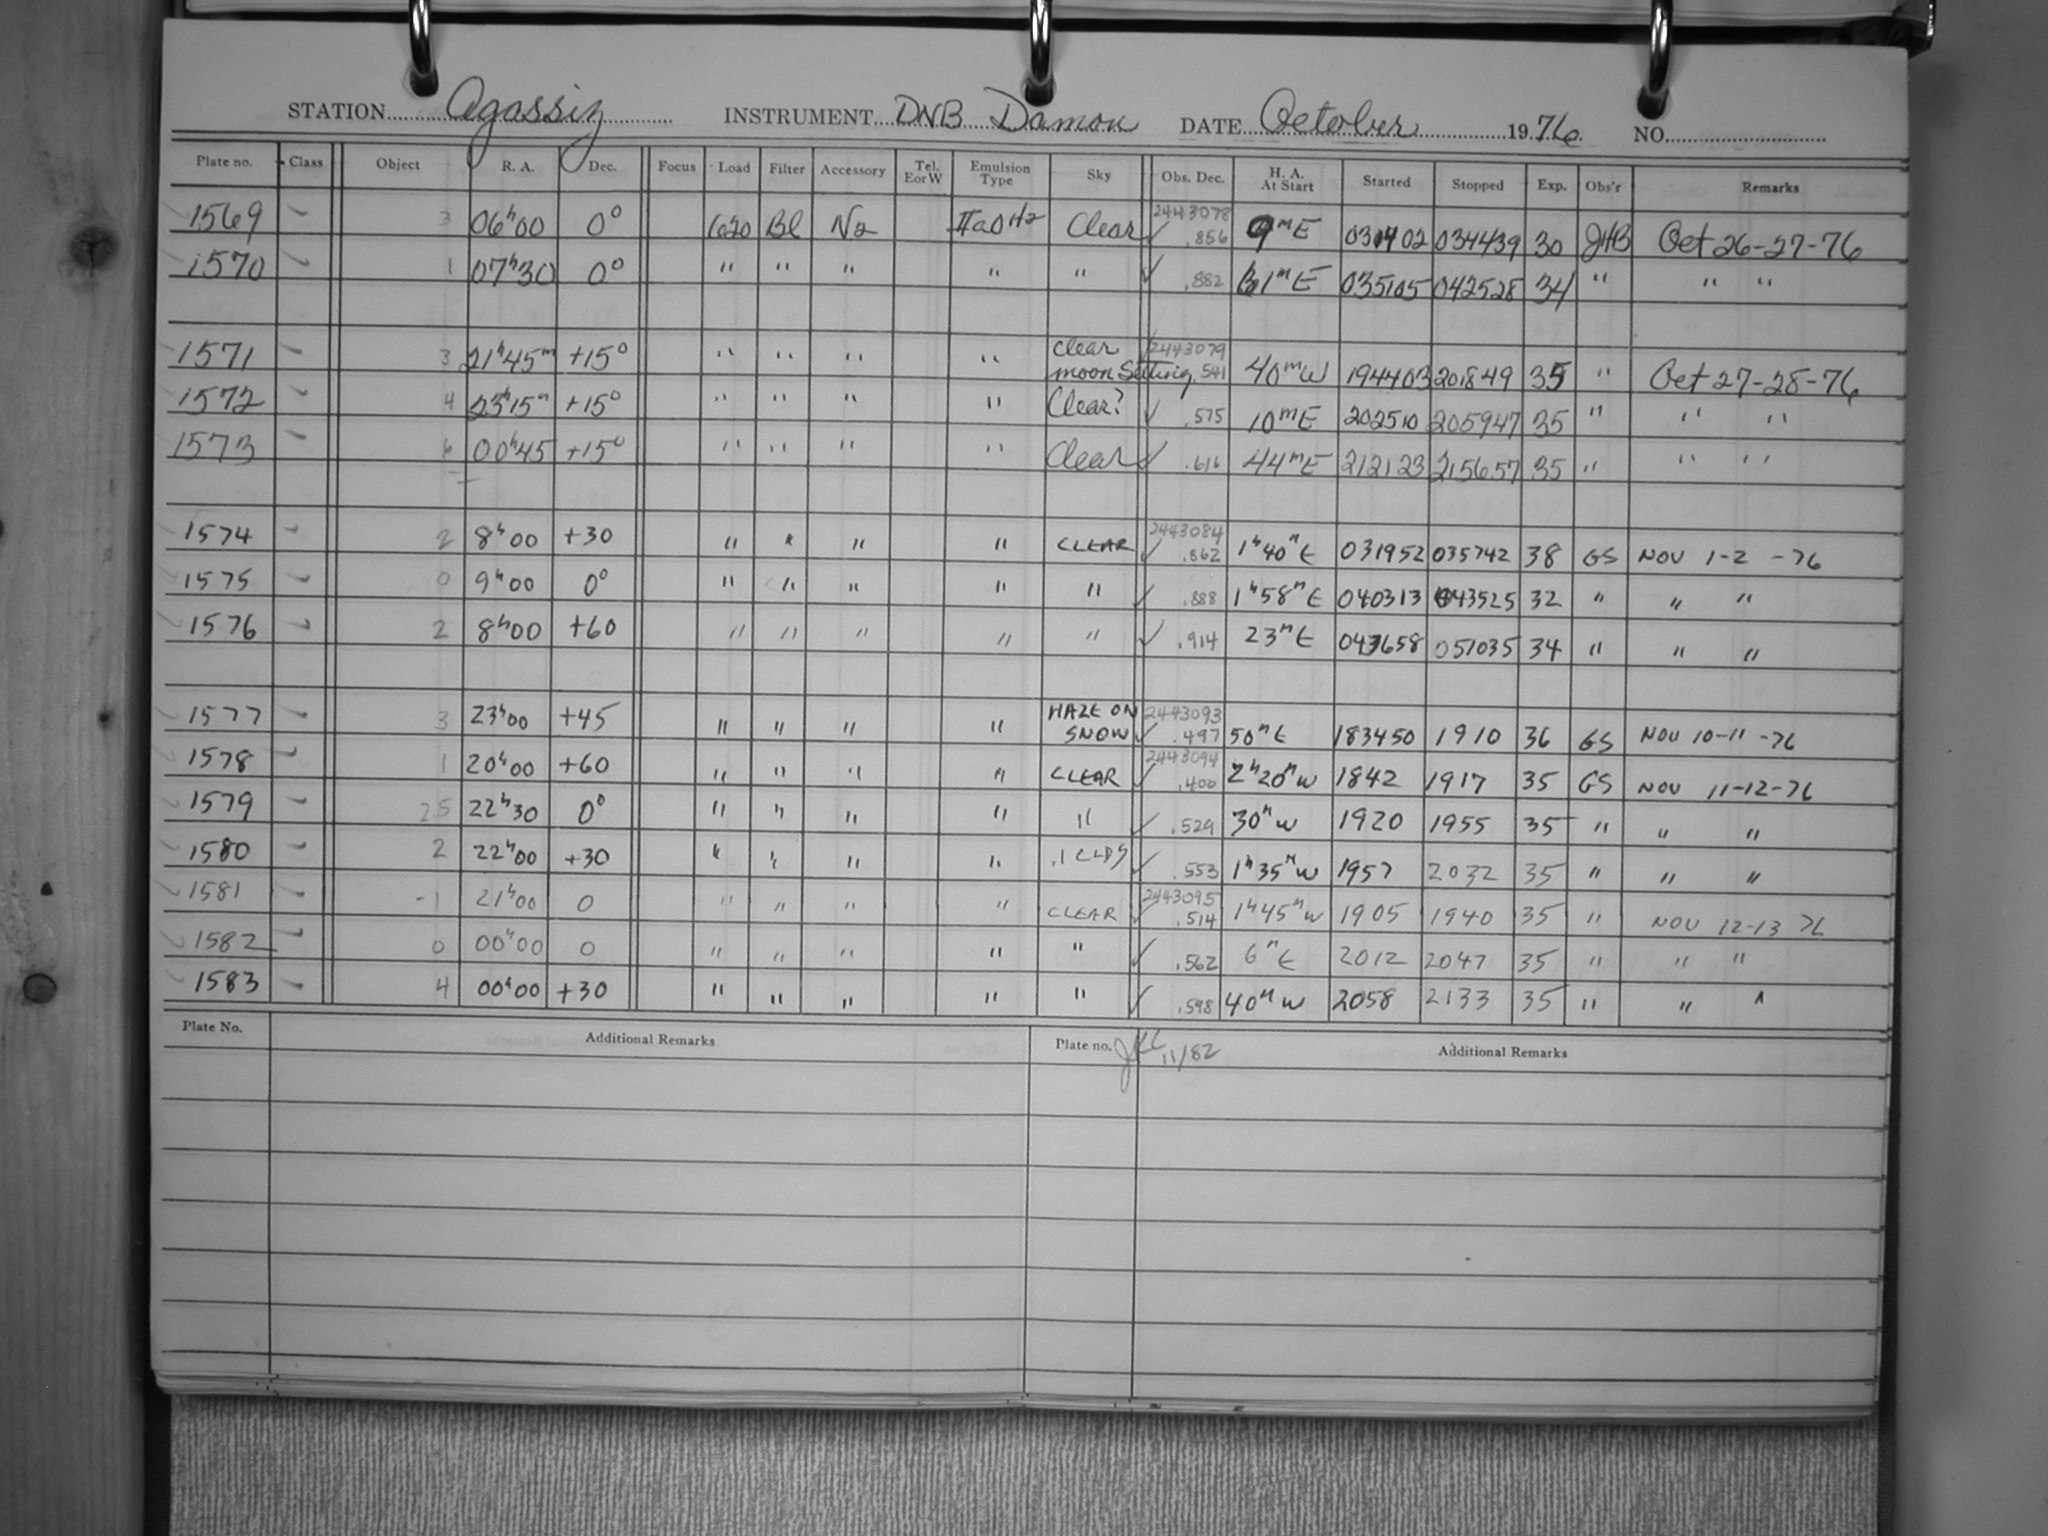 STATION Agassiz INSTRUMENT DNB Damon DATE October 1976 NO.
Plate no. Class Object R. A. Dec. Focus Load Filter Accessory Tel. E or W Emulsion Type Sky Obs. Dec. H. A. At Start Started Stopped Exp. Obs'r Remarks
1569 3 06ʰ00 0° 1620 Bl N2 IIaO H2 Clear 2443078 .856 9ᵐE 031402 034439 30 JHB Oct 26-27-76
1570 1 07ʰ30 0° " " " " " .882 31ᵐE 035105 042528 34 " " "
1571 3 21ʰ45ᵐ +15° " " " " Clear moon Setting 2443079 .541 40ᵐW 194403 201849 35 " Oct 27-28-76
1572 4 23ʰ15ᵐ +15° " " " " Clear? .575 10ᵐE 202510 205947 35 " " "
1573 6 00ʰ45 +15° " " " " Clear .616 44ᵐE 212123 215657 35 " " "
1574 2 8ʰ00 +30 " " " " CLEAR 2443084 .862 1ʰ40ᵐE 031952 035742 38 GS NOV 1-2 -76
1575 0 9ʰ00 0° " " " " " .888 1ʰ58ᵐE 040313 043525 32 " " "
1576 2 8ʰ00 +60 " " " " " .914 23ᵐE 043658 051035 34 " " "
1577 3 23ʰ00 +45 " " " " HAZE ON SNOW 2443093 .497 50ᵐE 183450 1910 36 GS NOV 10-11 -76
1578 1 20ʰ00 +60 " " " " CLEAR 2443094 .400 2ʰ20ᵐW 1842 1917 35 GS NOV 11-12-76
1579 25 22ʰ30 0° " " " " " .529 30ᵐW 1920 1955 35 " " "
1580 2 22ʰ00 +30 " " " " .1 CLDS .553 1ʰ35ᵐW 1957 2032 35 " " "
1581 -1 21ʰ00 0 " " " " CLEAR 2443095 .514 1ʰ45ᵐW 1905 1940 35 " NOV 12-13 76
1582 0 00ʰ00 0 " " " " " .562 6ᵐE 2012 2047 35 " " "
1583 4 00ʰ00 +30 " " " " " .598 40ᵐW 2058 2133 35 " " "
Plate No. Additional Remarks Plate no. 11/82 Additional Remarks